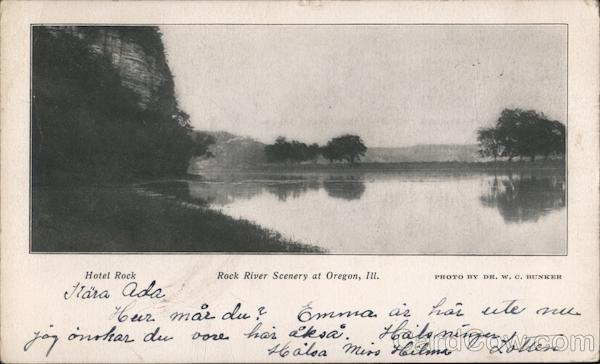 Hotel Rock Rock River Scenery at Oregon, Ill. PHOTO BY DR. W. C. BUNKER
Kära Ada
Hur mår du? Emma är här ute nu
jög önskar du vore här åkså. Hälsningar
Hälsa Miss Hilma Lotten
CardCow.com